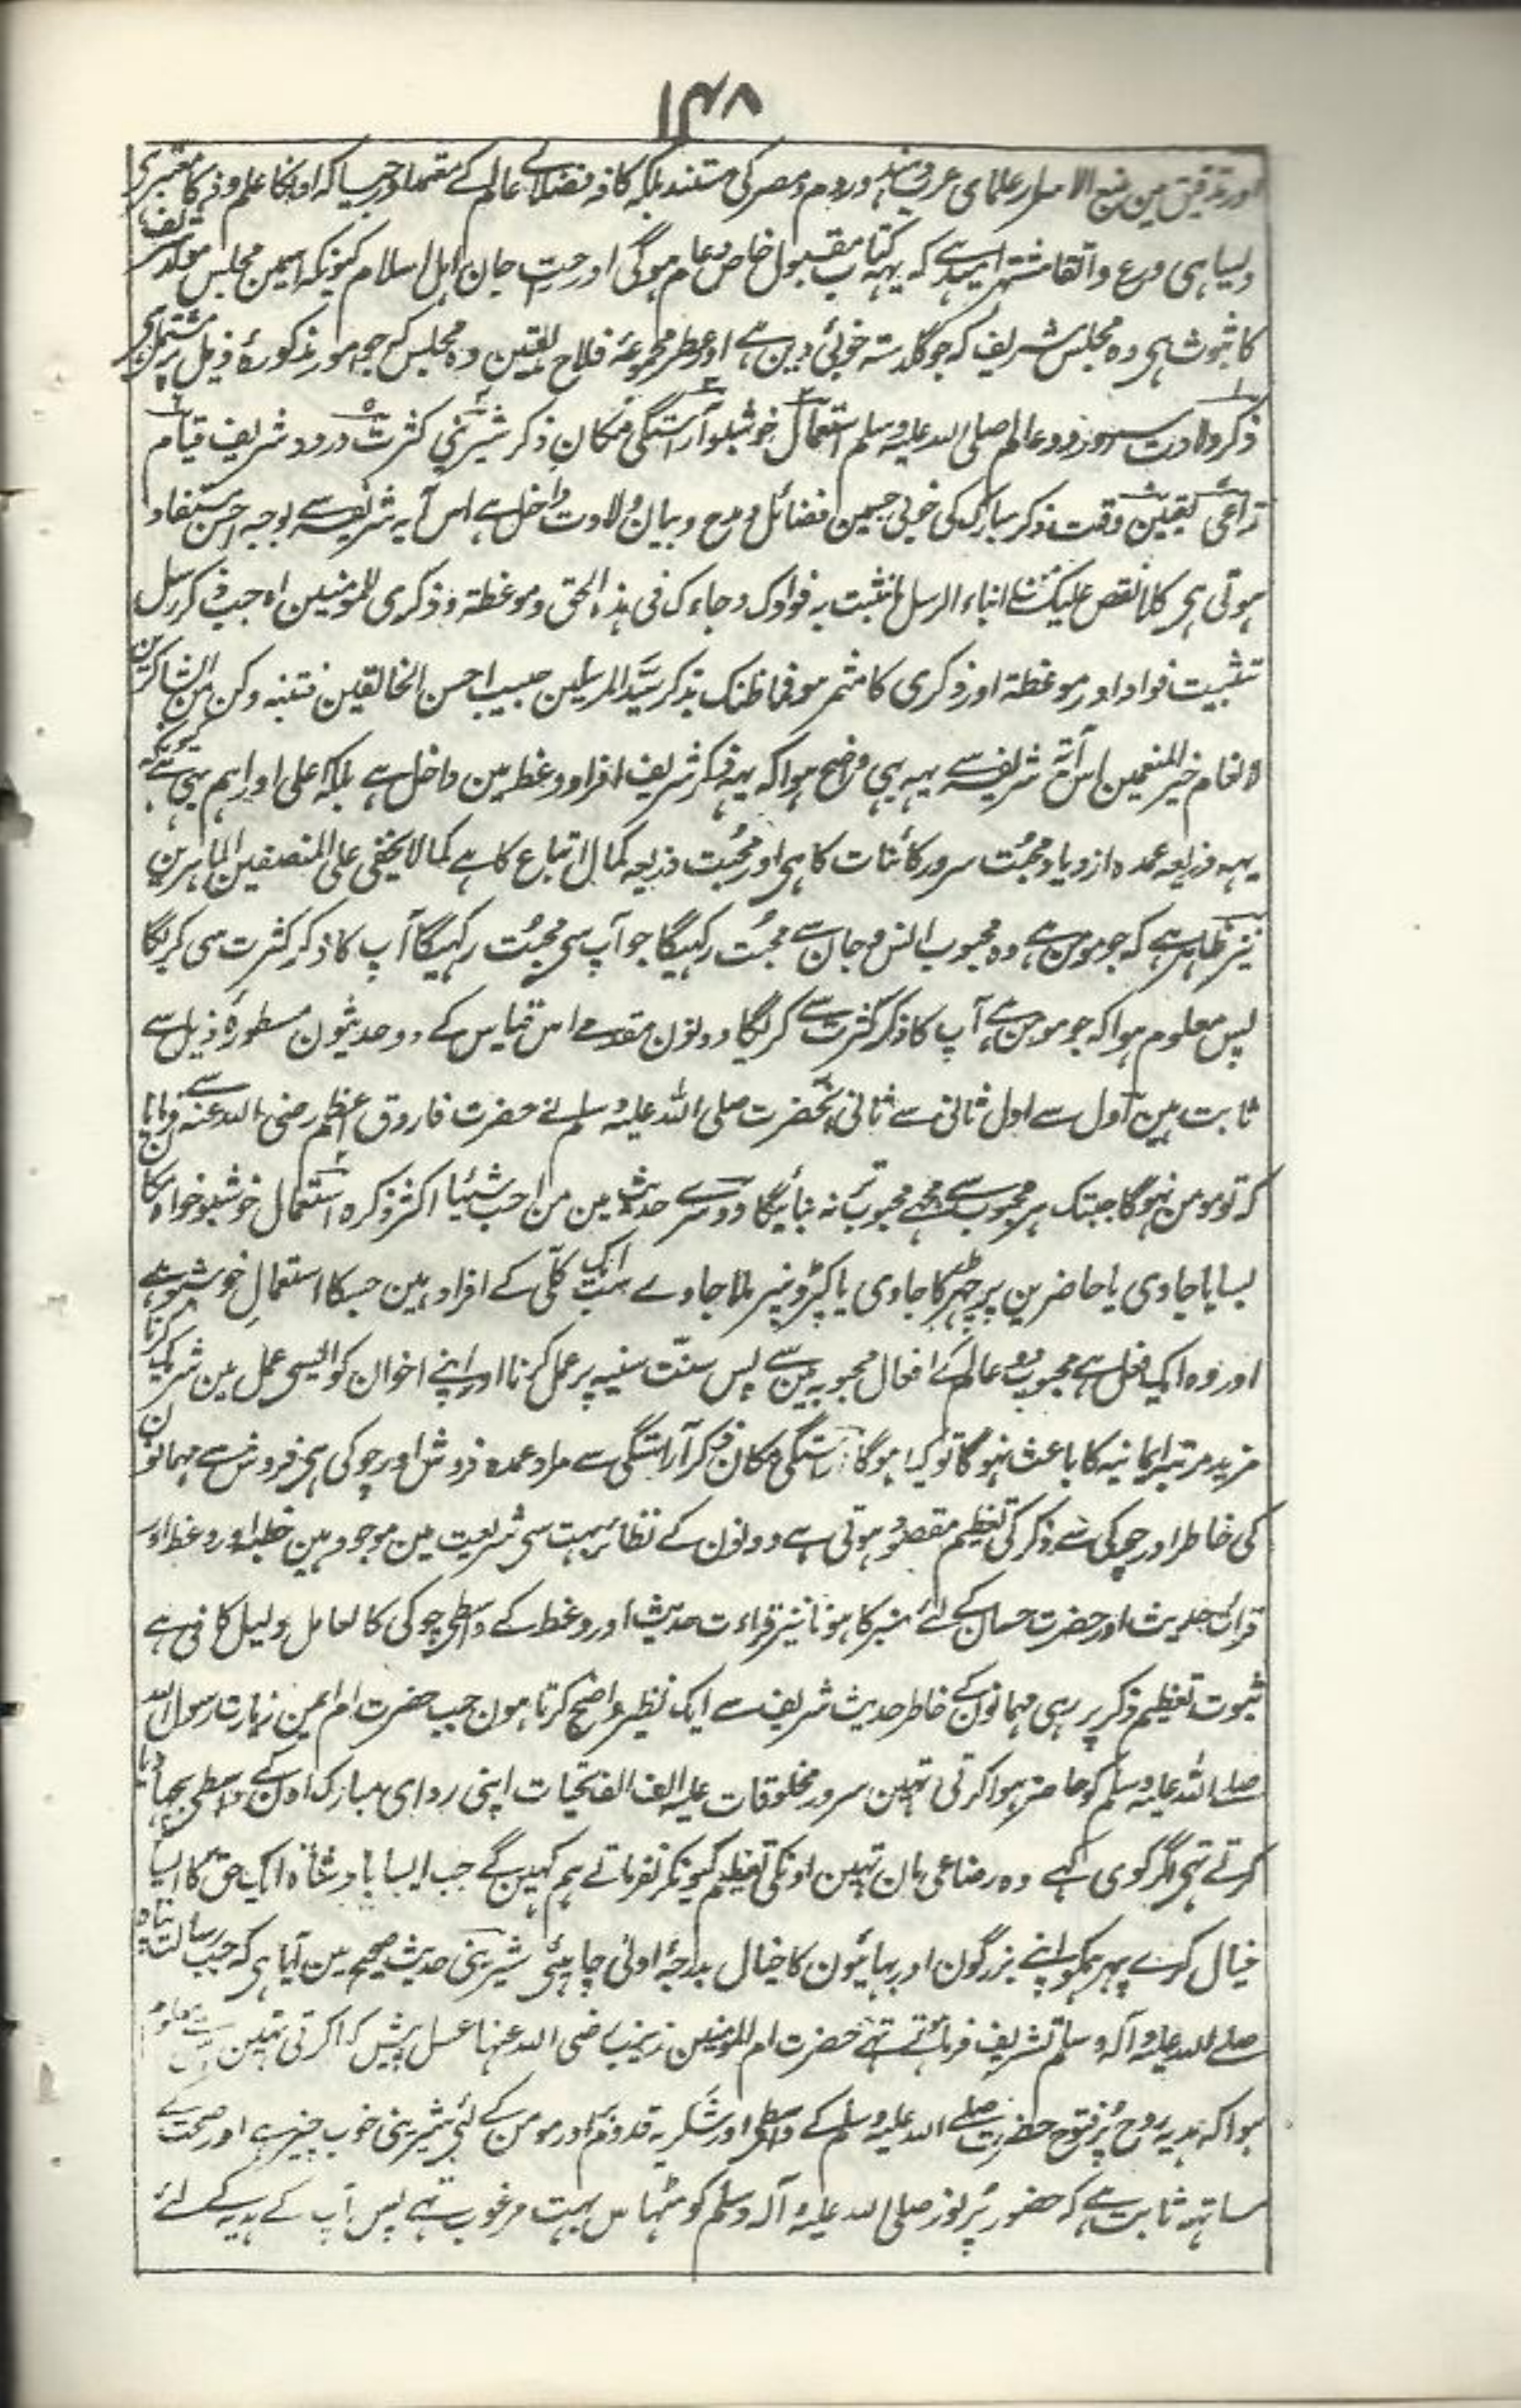 ۱۴۸
اور تدقیق مین علمای عرب و ہند و روم و مصر کی مستند بلکہ کافہ فضلای عالم کے معتمد اور جیسا کہ اونکا علم و ذکا معتبر ہی
ویسا ہی ورع و اتقا مشتہر امید ہے کہ یہہ کتاب مقبول خاص و عام ہوگی اور حرز جان اہل اسلام کیونکہ اسمین مجلس مولد شریف
کا ثبوت ہی وہ مجلس شریف کہ جو گلدستہ خوبئ دین ہے اور عطر مجموعۂ فلاح یقین وہ مجلس کہ جو امور مذکورۂ ذیل پر مشتمل ہی
ذکر ولادت سرور دو عالم صلی اللہ علیہ وسلم استعمال خوشبو آراستگی مکان ذکر شیرینی کثرت درود شریف قیام
تداعی تعیین وقت ذکر مبارک کی خوبی جسمین فضائل و مدح و بیان ولادت داخل ہے اس آیہ شریفہ سے بوجہ احسن مستفاد
ہوتی ہی کلا نقص علیک من انباء الرسل ما نثبت بہ فوادک وجاءک فی ہذہ الحق وموعظة وذکری للمومنین اہ جب ذکر رسل
تثبیت فواد اور موعظة اور ذکری کا مثمر ہو فما ظنک بذکر سید المرسلین حبیب احسن الخالقین فتنبہ وکن من الشاکرین
لانعام خیر المنعمین اس آیۃ شریفہ سے یہہ بہی واضح ہوا کہ یہہ ذکر شریف افراد وعظ مین داخل ہے بلکہ اعلی اور اہم ہی کیونکہ
یہہ ذریعہ عمدہ ازدیاد محبت سرور کائنات کا ہی اور محبت ذریعہ کمال اتباع کا ہے کما لا یخفی علی المنصفین الماہرین
نیز ظاہر ہے کہ جو مومن ہے وہ محبوب انس و جان سے محبت رکہیگا جو آپ سی محبت رکہیگا آپ کا ذکر کثرت سی کریگا
پس معلوم ہوا کہ جو مومن ہے آپ کا ذکر کثرت سے کریگا دونون مقدمے اس قیاس کے دو حدیثون مسطورۂ ذیل سے
ثابت ہین اول سے اول ثانی سے ثانی آنحضرت صلی اللہ علیہ وسلم نے حضرت فاروق اعظم رضی اللہ عنہ سے فرمایا
کہ تو مومن نہوگا جبتک ہر محبوب سے مجہے محبوب تر نہ بنائیگا دوسرے حدیث مین من احب شیئا اکثر ذکرہ استعمال خوشبو خواہ مکان
بسایا جاوی یا حاضرین پر چہڑکا جاوی یا کپڑونپر ملا جاوے سب ایک کلی کے افراد ہین جسکا استعمال خوشبو ہے
اور وہ ایک فعل ہے محبوب دو عالم کے افعال محبوبہ مین سے پس سنت سنیہ پر عمل کرنا اور اپنے اخوان کو ایسی عمل مین شریک کرنا
مزید مرتبہ ایمانیہ کا باعث نہوگا تو کیا ہوگا آراستگی مکان ذکر آراستگی سے مراد عمدہ فروش اور چوکی ہی فروش سے مہمانون
کی خاطر اور چوکی سے ذکر کی تعظیم مقصود ہوتی ہے دونون کے نظائر بہت سی شریعت مین موجود ہین خطبہ اور وعظ اور
قرات حدیث اور حضرت حسان کے لئے منبر کا ہونا نیز قراءت حدیث اور وعظ کے واسطی چوکی کا تعامل دلیل کافی ہے
ثبوت تعظیم ذکر پر رہی مہمانون کے خاطر حدیث شریف سے ایک نظیر واضح کرتا ہون جب حضرت ام ایمن زیارت رسول اللہ
صلے اللہ علیہ وسلم کو حاضر ہوا کرتی تہین سرور مخلوقات علیہ الف الف تحیات اپنی ردای مبارک اون کے واسطی بچہا دیا
کرتے تہی اگر کوی کہے وہ رضاعی مان تہین اونکی تعظیم کیونکر نفرماتے ہم کہین گے جب ایسا بادشاہ ایک حق کا ایسا
خیال کرے پہر ہمکو اپنے بزرگون اور بہائیون کا خیال بدرجۂ اولی چاہیئی شیرینی حدیث صحیح مین آیا ہی کہ جب رسالت پناہ
صلے اللہ علیہ وآلہ وسلم تشریف فرماتے تہے حضرت ام المومنین زینب رضی اللہ عنہا عسل پیش کیا کرتی تہین معلوم
ہوا کہ ہدیہ روح پر فتوح حضرت صلے اللہ علیہ وسلم کے واسطی اور شکریہ قدوم اور مومن کے لئی شیرینی خوب چیز ہے اور صحت کے
ساتہہ ثابت ہے کہ حضور پرنور صلی اللہ علیہ وآلہ وسلم کو مٹہاس بہت مرغوب تہے پس آپ کے ہدیہ کے لئے